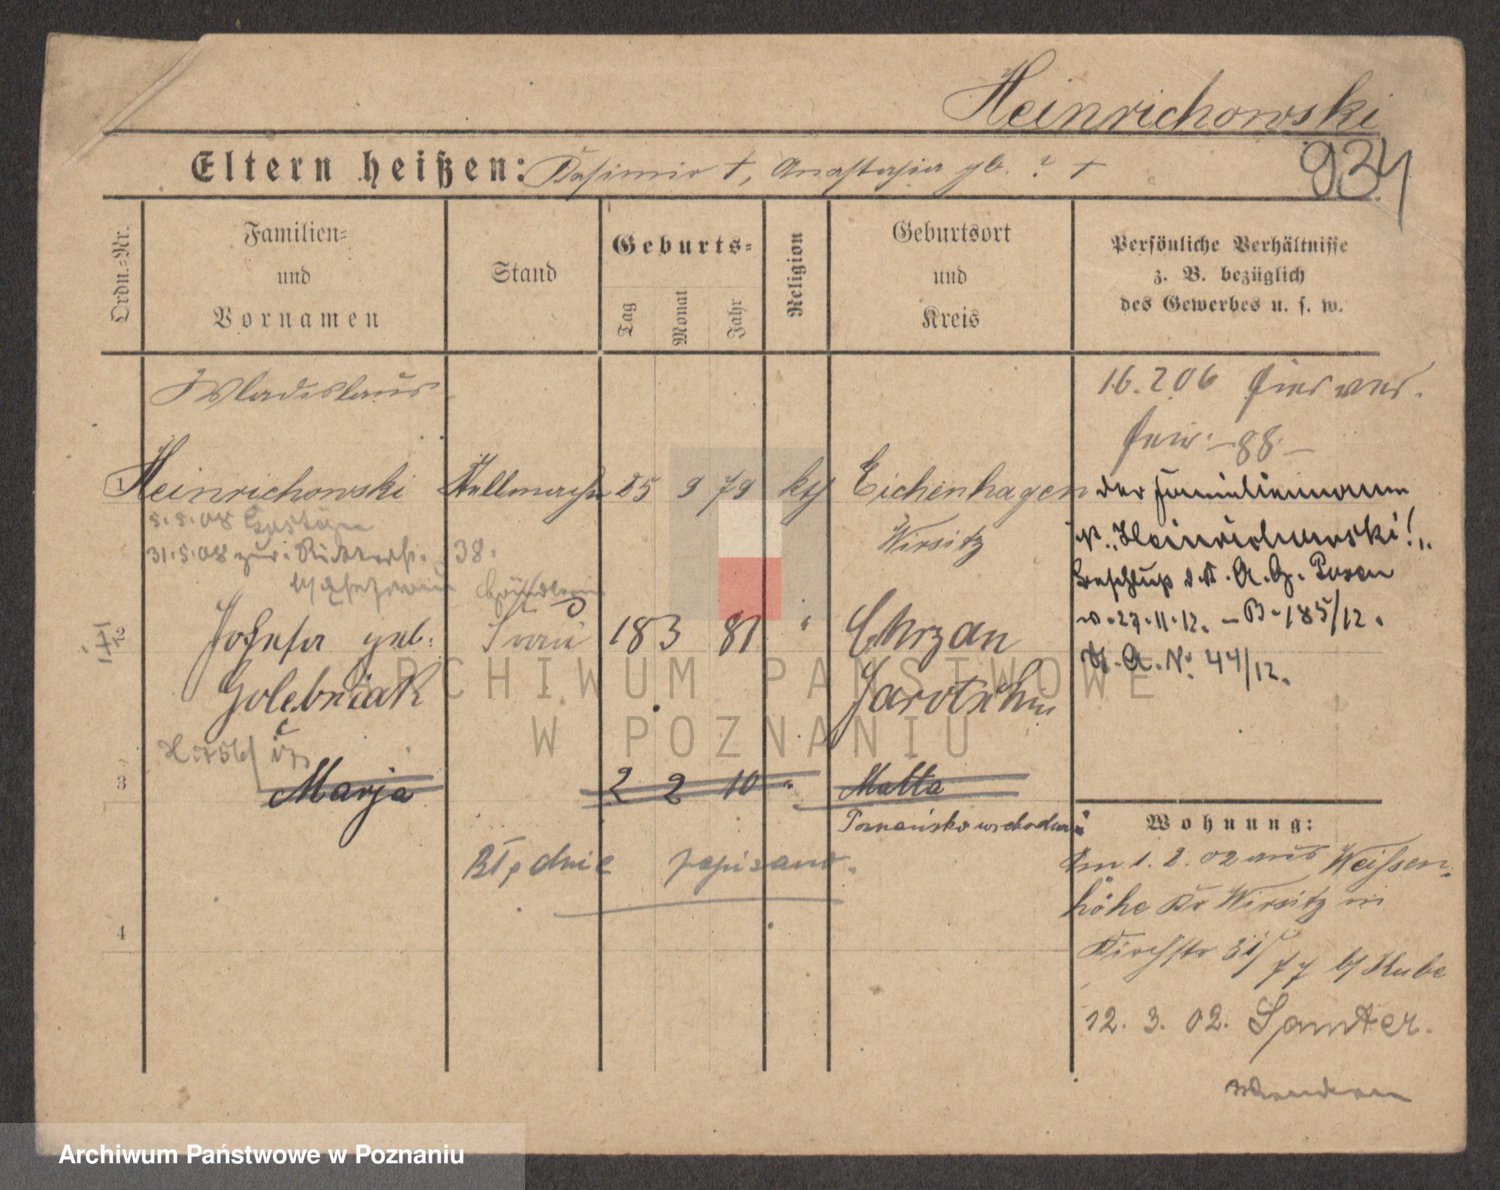 Heinrichowski
934
Eltern heißen: Kasimir †, Anastasia gb. ? †
Ordn.-Nr.
Familien-
und
Vornamen
Stand
Geburts-
Tag
Monat
Jahr
Religion
Geburtsort
und
Kreis
Persönliche Verhältnisse
z. B. bezüglich
des Gewerbes u. s. w.
Wladislaus
16.2.06
88.
1 Heinrichowski Stellmacher 25 9 79 kth Eichenhagen
Wirsitz
der Familienname
ist „Heinrichowski!"
Beschluß d. K. A. G. Posen
v. 27.11.12. – B. 185/12.
H. A. No. 44/12.
5.5.08
31.5.08 zur. Ritterstr. 38.
2 Josefa geb. Frau 18 3 81 " Chrzan
Golebniak Jarotschin
3 Marja 2 2 10 " Malta
Poznańsko wschodni
Błędnie zapisano.
4
Wohnung:
Am 1.2.02 aus Weissen-
höhe Kr Wirsitz in
Kirchstr 31/ b/ Kube
12.3.02. Samter.
ARCHIWUM PAŃSTWOWE
W POZNANIU
Archiwum Państwowe w Poznaniu